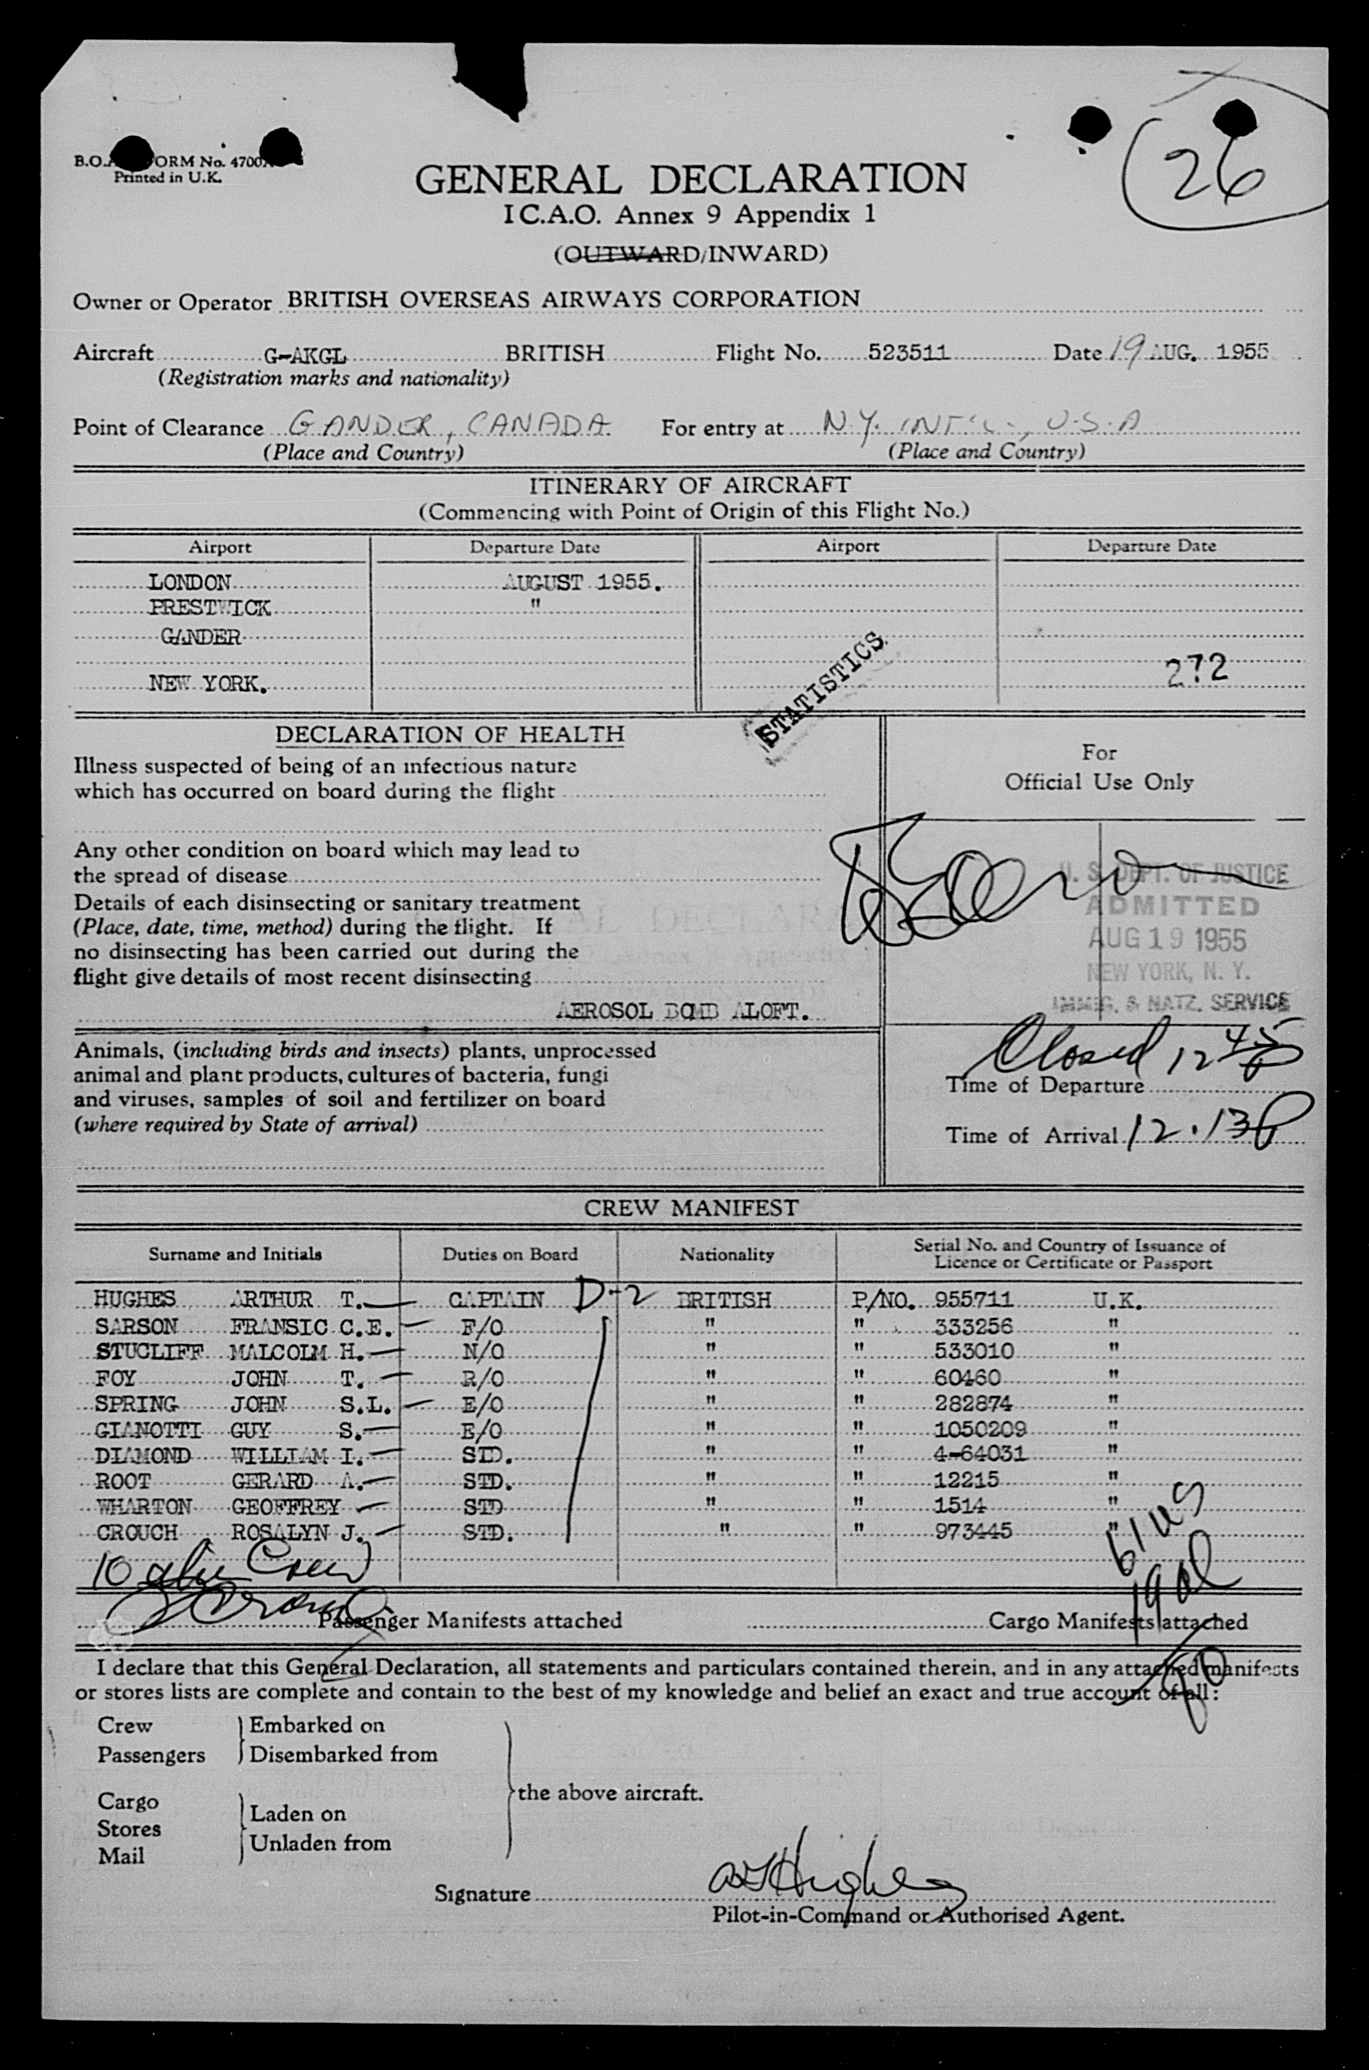 B.O.A. FORM No. 4700
Printed in U.K.
26
GENERAL DECLARATION
I C.A.O. Annex 9 Appendix 1
(OUTWARD/INWARD)
Owner or Operator BRITISH OVERSEAS AIRWAYS CORPORATION
Aircraft G-AKGL BRITISH Flight No. 523511 Date 19 AUG. 1955
(Registration marks and nationality)
Point of Clearance GANDER, CANADA For entry at N.Y. INT'L., U.S.A
(Place and Country) (Place and Country)
ITINERARY OF AIRCRAFT
(Commencing with Point of Origin of this Flight No.)
Airport Departure Date Airport Departure Date
LONDON AUGUST 1955.
PRESTWICK "
GANDER
272
NEW YORK.
STATISTICS
DECLARATION OF HEALTH
Illness suspected of being of an infectious nature
which has occurred on board during the flight
For
Official Use Only
Any other condition on board which may lead to
the spread of disease
Details of each disinsecting or sanitary treatment
(Place, date, time, method) during the flight. If
no disinsecting has been carried out during the
flight give details of most recent disinsecting
AEROSOL BOMB ALOFT.
U. S. DEPT. OF JUSTICE
ADMITTED
AUG 19 1955
NEW YORK, N. Y.
IMMIG. & NATZ. SERVICE
Animals, (including birds and insects) plants, unprocessed
animal and plant products, cultures of bacteria, fungi
and viruses, samples of soil and fertilizer on board
(where required by State of arrival)
Closed 12 45 p
Time of Departure
Time of Arrival 12.13 p
CREW MANIFEST
Surname and Initials Duties on Board Nationality Serial No. and Country of Issuance of
Licence or Certificate or Passport
HUGHES ARTHUR T. CAPTAIN D-2 BRITISH P/NO. 955711 U.K.
SARSON FRANSIC C.E. F/O " " 333256 "
STUCLIFF MALCOLM H. N/O " " 533010 "
FOY JOHN T. R/O " " 60460 "
SPRING JOHN S.L. E/O " " 282874 "
GIANOTTI GUY S. E/O " " 1050209 "
DIAMOND WILLIAM I. STD. " " 4-64031 "
ROOT GERARD A. STD. " " 12215 "
WHARTON GEOFFREY STD " " 1514 "
CROUCH ROSALYN J. STD. " " 973445 "
10 alien Crew
Passenger Manifests attached Cargo Manifests attached
I declare that this General Declaration, all statements and particulars contained therein, and in any attached manifests
or stores lists are complete and contain to the best of my knowledge and belief an exact and true account of all:
Crew Embarked on
Passengers Disembarked from
the above aircraft.
Cargo
Stores
Mail
Laden on
Unladen from
Signature A T Hughes
Pilot-in-Command or Authorised Agent.